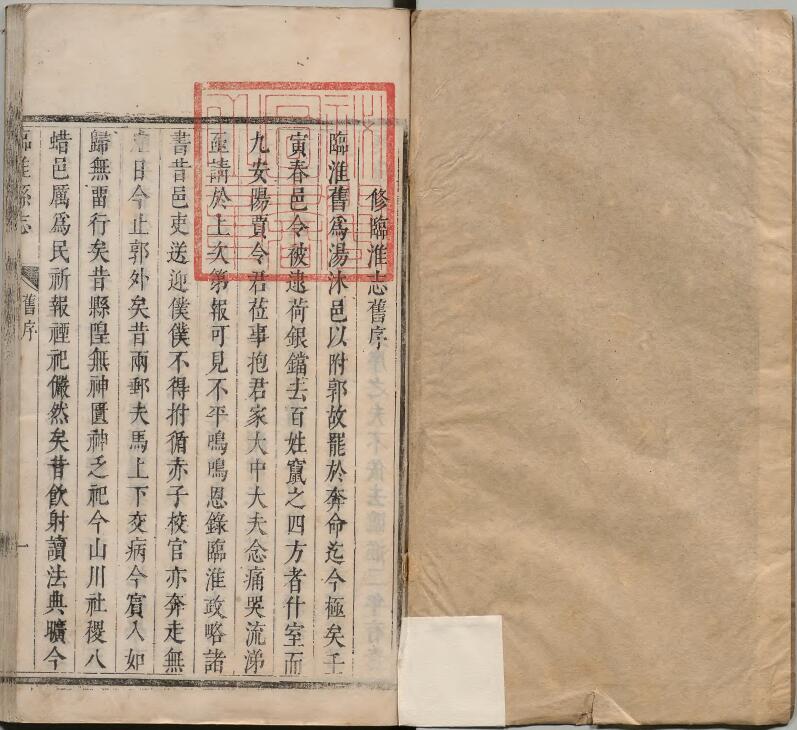 修臨淮志舊序
臨淮舊為湯沐邑以附郭故罷於奔命迄今極矣壬
寅春邑令被逮荷銀鐺去百姓竄之四方者什室而
九安陽賈令君莅事抱君家大中大夫念痛哭流涕
亟請於上次第報可見不平鳴鳴恩錄臨淮政略諸
書昔邑吏送迎僕僕不得拊循赤子校官亦奔走無
日今止郭外矣昔兩郵夫馬上下交病今賓入如
歸無畱行矣昔縣隍無神匱神乏祀今山川社稷八
蜡邑厲為民祈報禋祀儼然矣昔飲射讀法典曠今
臨淮縣志
舊序
一